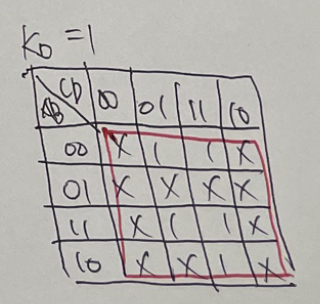 K_D = 1
AB CD 00 01 11 10
00 X 1 1 X
01 X X X X
11 X 1 1 X
10 X X 1 X